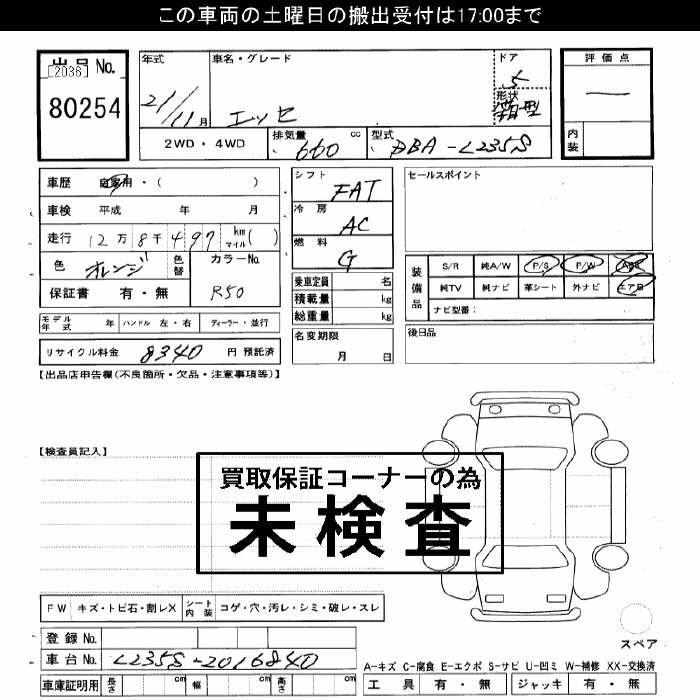 この車両の土曜日の搬出受付は17:00まで
出品No.
[2036]
80254
年式
21/11月
車名・グレード
エッセ
ドア
5
形状
箱型
2WD・4WD
排気量 660 cc
型式 DBA-L235S
評価点
―
内装
車歴 自家用・( )
車検 平成 年 月
走行 12万8千497 km マイル( )
色 オレンジ 色替
カラーNo. R50
保証書 有・無
モデル年式 年 ハンドル 左・右 ディーラー・並行
リサイクル料金 8340 円 預託済
シフト FAT
冷房 AC
燃料 G
乗車定員 名
積載量 kg
総重量 kg
名変期限
月 日
セールスポイント
装備品
S/R 純A/W P/S P/W ABS
純TV 純ナビ 革シート 外ナビ エアB
ナビ型番:
後日品
【出品店申告欄(不良箇所・欠品・注意事項等)】
【検査員記入】
買取保証コーナーの為
未検査
FW キズ・トビ石・割レX シート内装 コゲ・穴・汚レ・シミ・破レ・スレ
登録No.
車台No. L235S-2016840
車庫証明用 長さ cm 幅 cm 高さ cm
スペア
A-キズ C-腐食 E-エクボ S-サビ U-凹ミ W-補修 XX-交換済
工具 有・無 ジャッキ 有・無